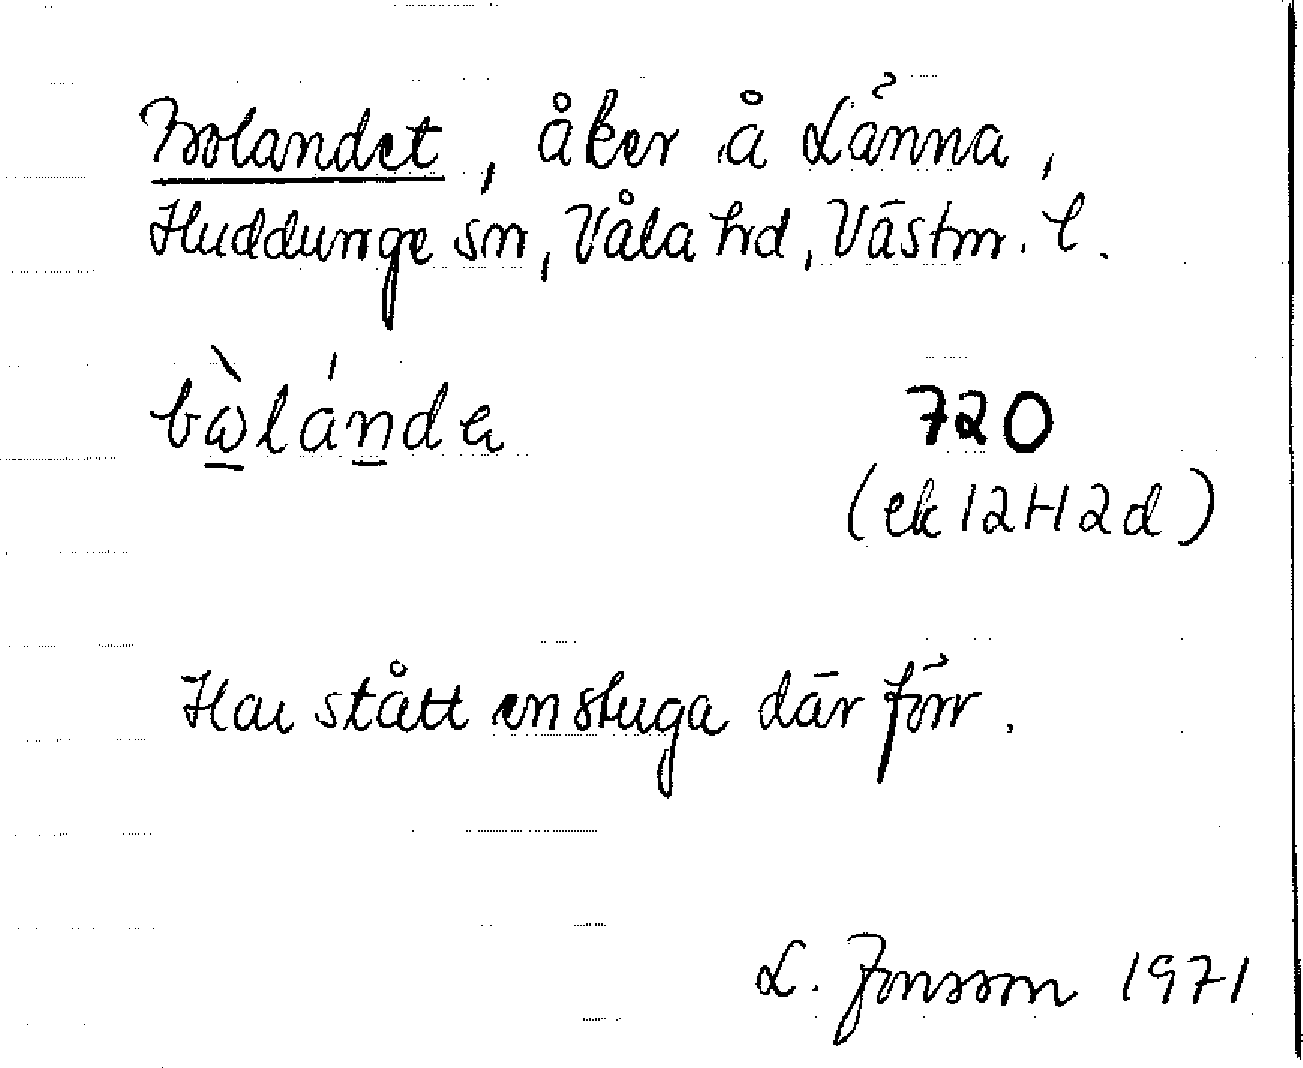 Bolandet, åker å Länna,
Huddunge sn, Våla hd, Västm. l.
720
(ek 12H2d)
Har stått en stuga där förr.
L. Jonsson 1971